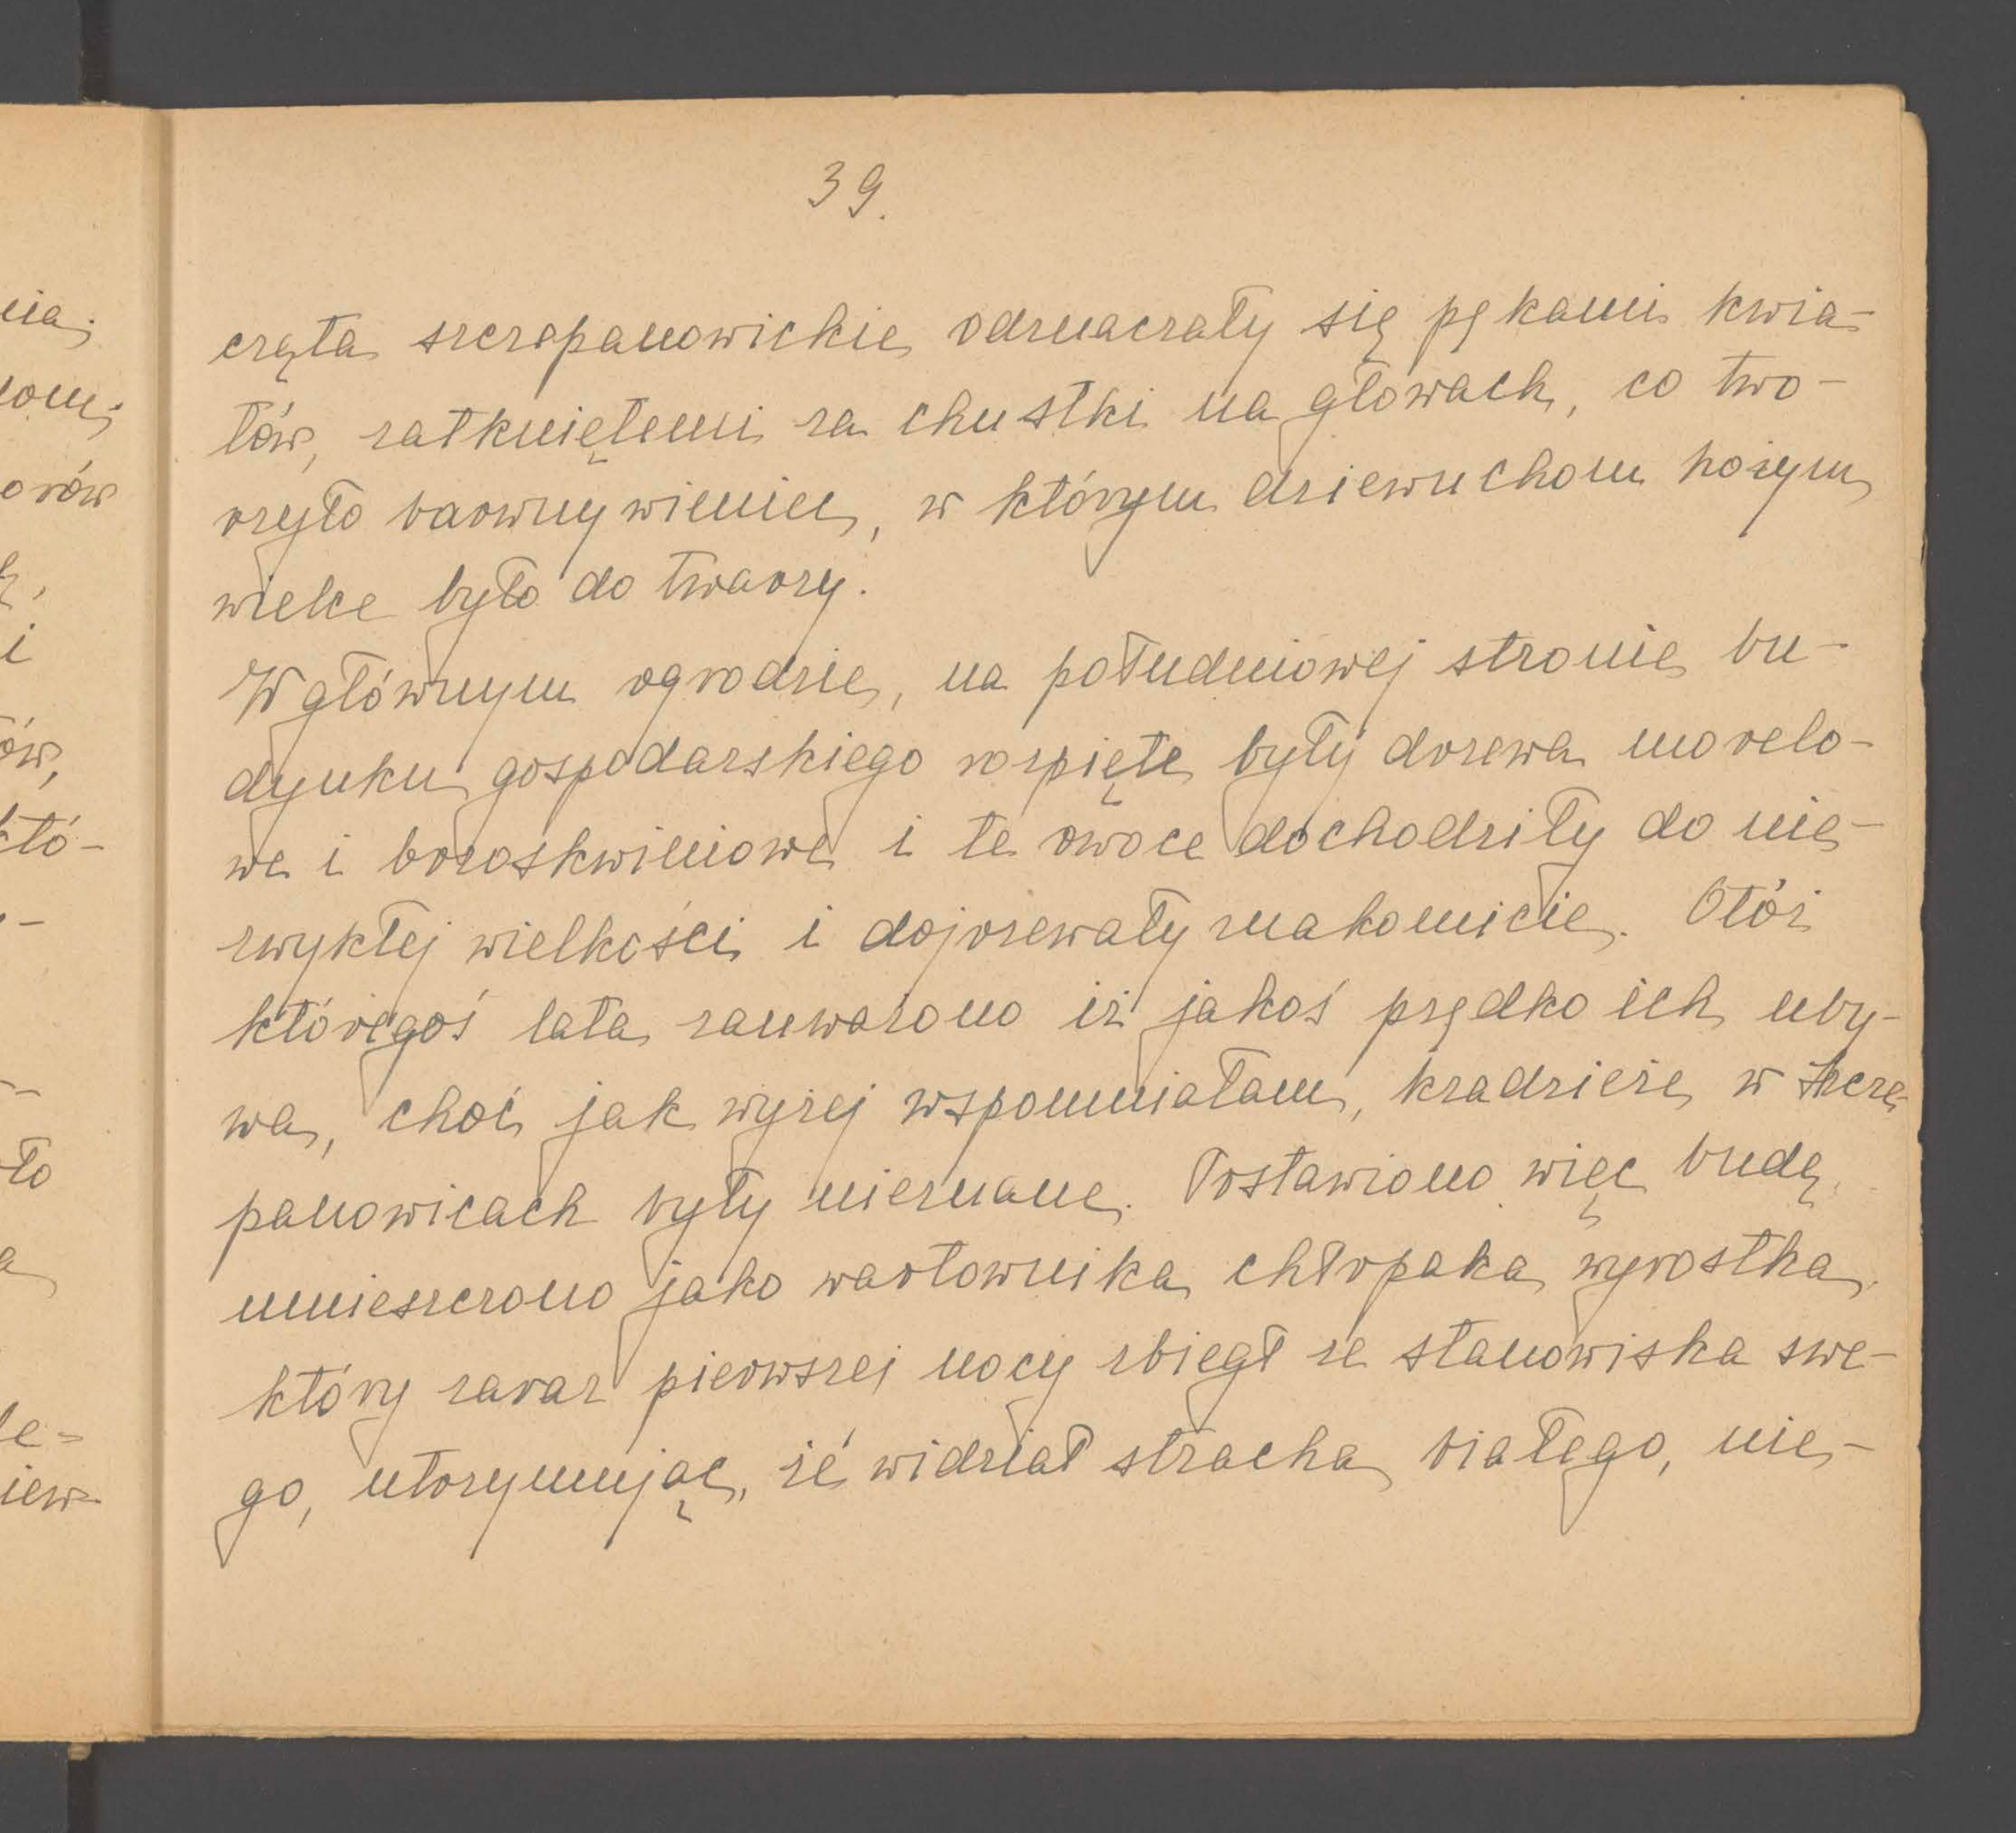 39.
częta szczepanowickie odznaczały się pękami kwia-
tów, zatkniętemi za chustki na głowach, co two-
rzyło barwny wieniec, w którym dziewuchom hożym
wielce było do twarzy.
W głównym ogrodzie, na południowej stronie bu-
dynku gospodarskiego rozpięte były drzewa morelo-
we i brzoskwiniowe i te owoce dochodziły do nie-
zwykłej wielkości i dojrzewały znakomicie. Otóż
któregoś lata zauważono iż jakoś prędko ich uby-
wa, choć jak wyżej wspomniałam, kradzieże w Szcze-
panowicach były nieznane. Postawiono więc budę,
umieszczono jako wartownika chłopaka wyrostka,
który zaraz pierwszej nocy zbiegł ze stanowiska swe-
go, utrzymując, że widział stracha białego, nie-